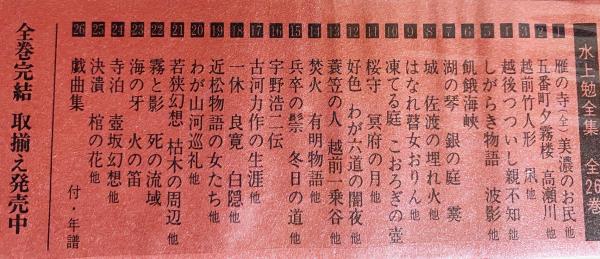 水上勉全集 全26巻
1 雁の寺(全) 美濃のお民 他
2 五番町夕霧楼 高瀬川 他
3 越前竹人形 凩 他
4 越後つついし親不知 他
5 しがらき物語 波影 他
6 飢餓海峡
7 湖の琴 銀の庭 葵
8 城 佐渡の埋れ火 他
9 はなれ瞽女おりん 他
10 凍てる庭 こおろぎの壺
11 桜守 冥府の月 他
12 好色 わが六道の闇夜 他
13 蓑笠の人 越前一乗谷 他
14 焚火 有明物語 他
15 兵卒の鬃 冬日の道 他
16 宇野浩二伝
17 古河力作の生涯 他
18 一休 良寛 白隠 他
19 近松物語の女たち 他
20 わが山河巡礼 他
21 若狭幻想 枯木の周辺 他
22 霧と影 死の流域
23 海の牙 火の笛
24 寺泊 壺坂幻想 他
25 決潰 棺の花 他
26 戯曲集 付・年譜
全巻完結 取揃え発売中